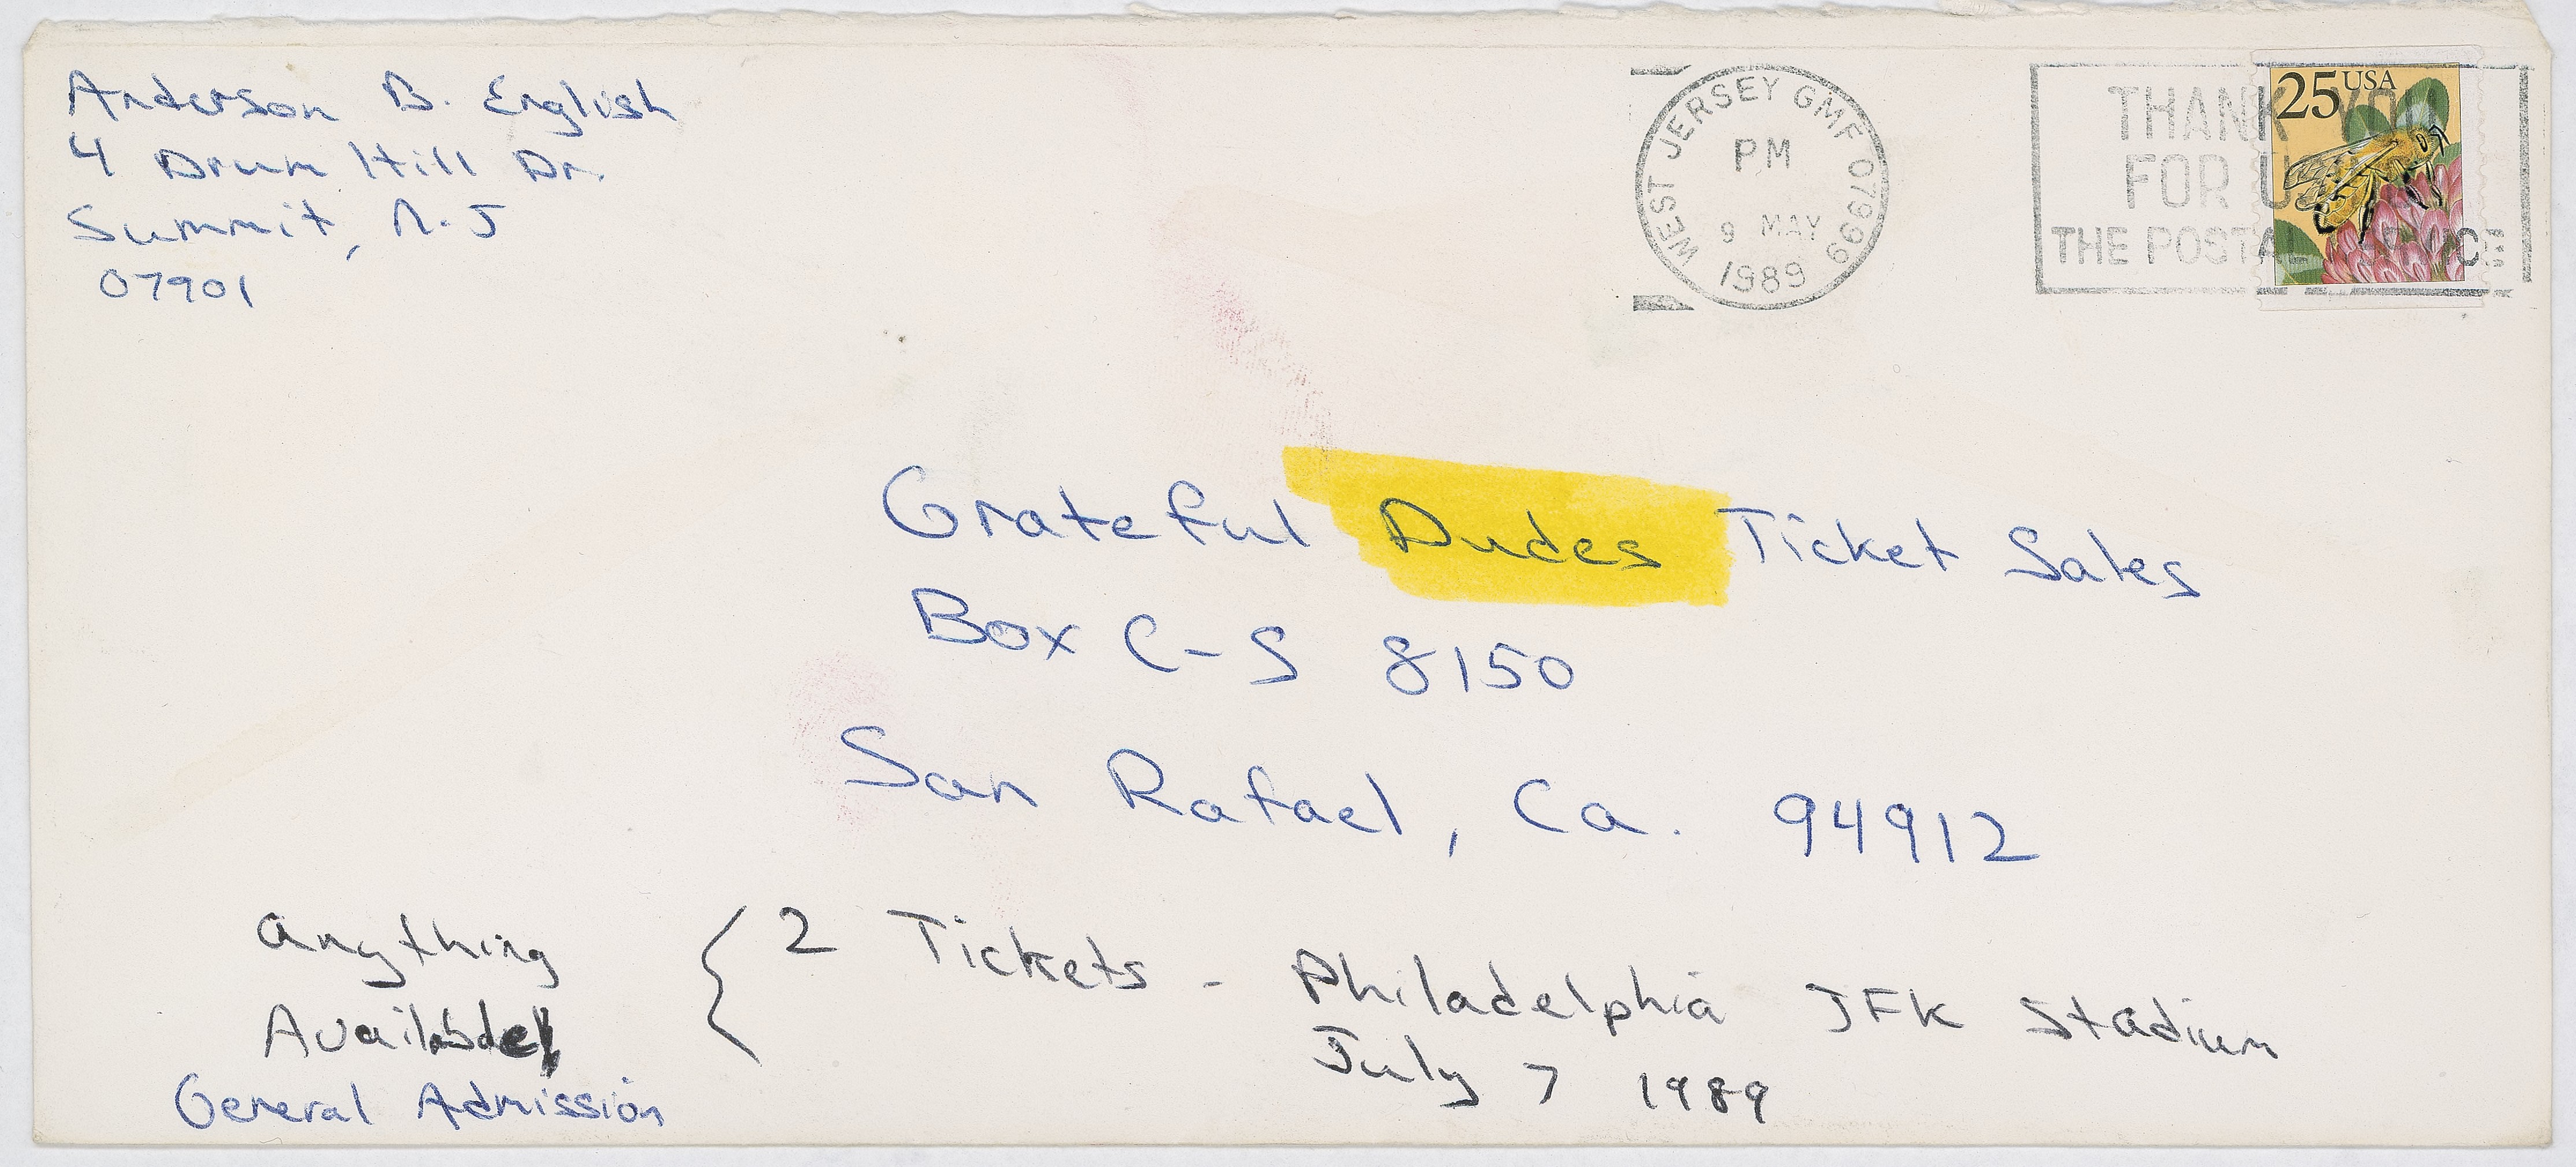 Anderson B. English
4 Drum Hill Dr.
Summit, N.J
07901
WEST JERSEY GMF 07999
PM
9 MAY
1989
THANK YOU
FOR US
THE POSTAL SERVICE
25 USA
Grateful Dudes Ticket Sales
Box C-S 8150
San Rafael, Ca. 94912
Anything
Available
General Admission
{ 2 Tickets - Philadelphia JFK Stadium
July 7 1989